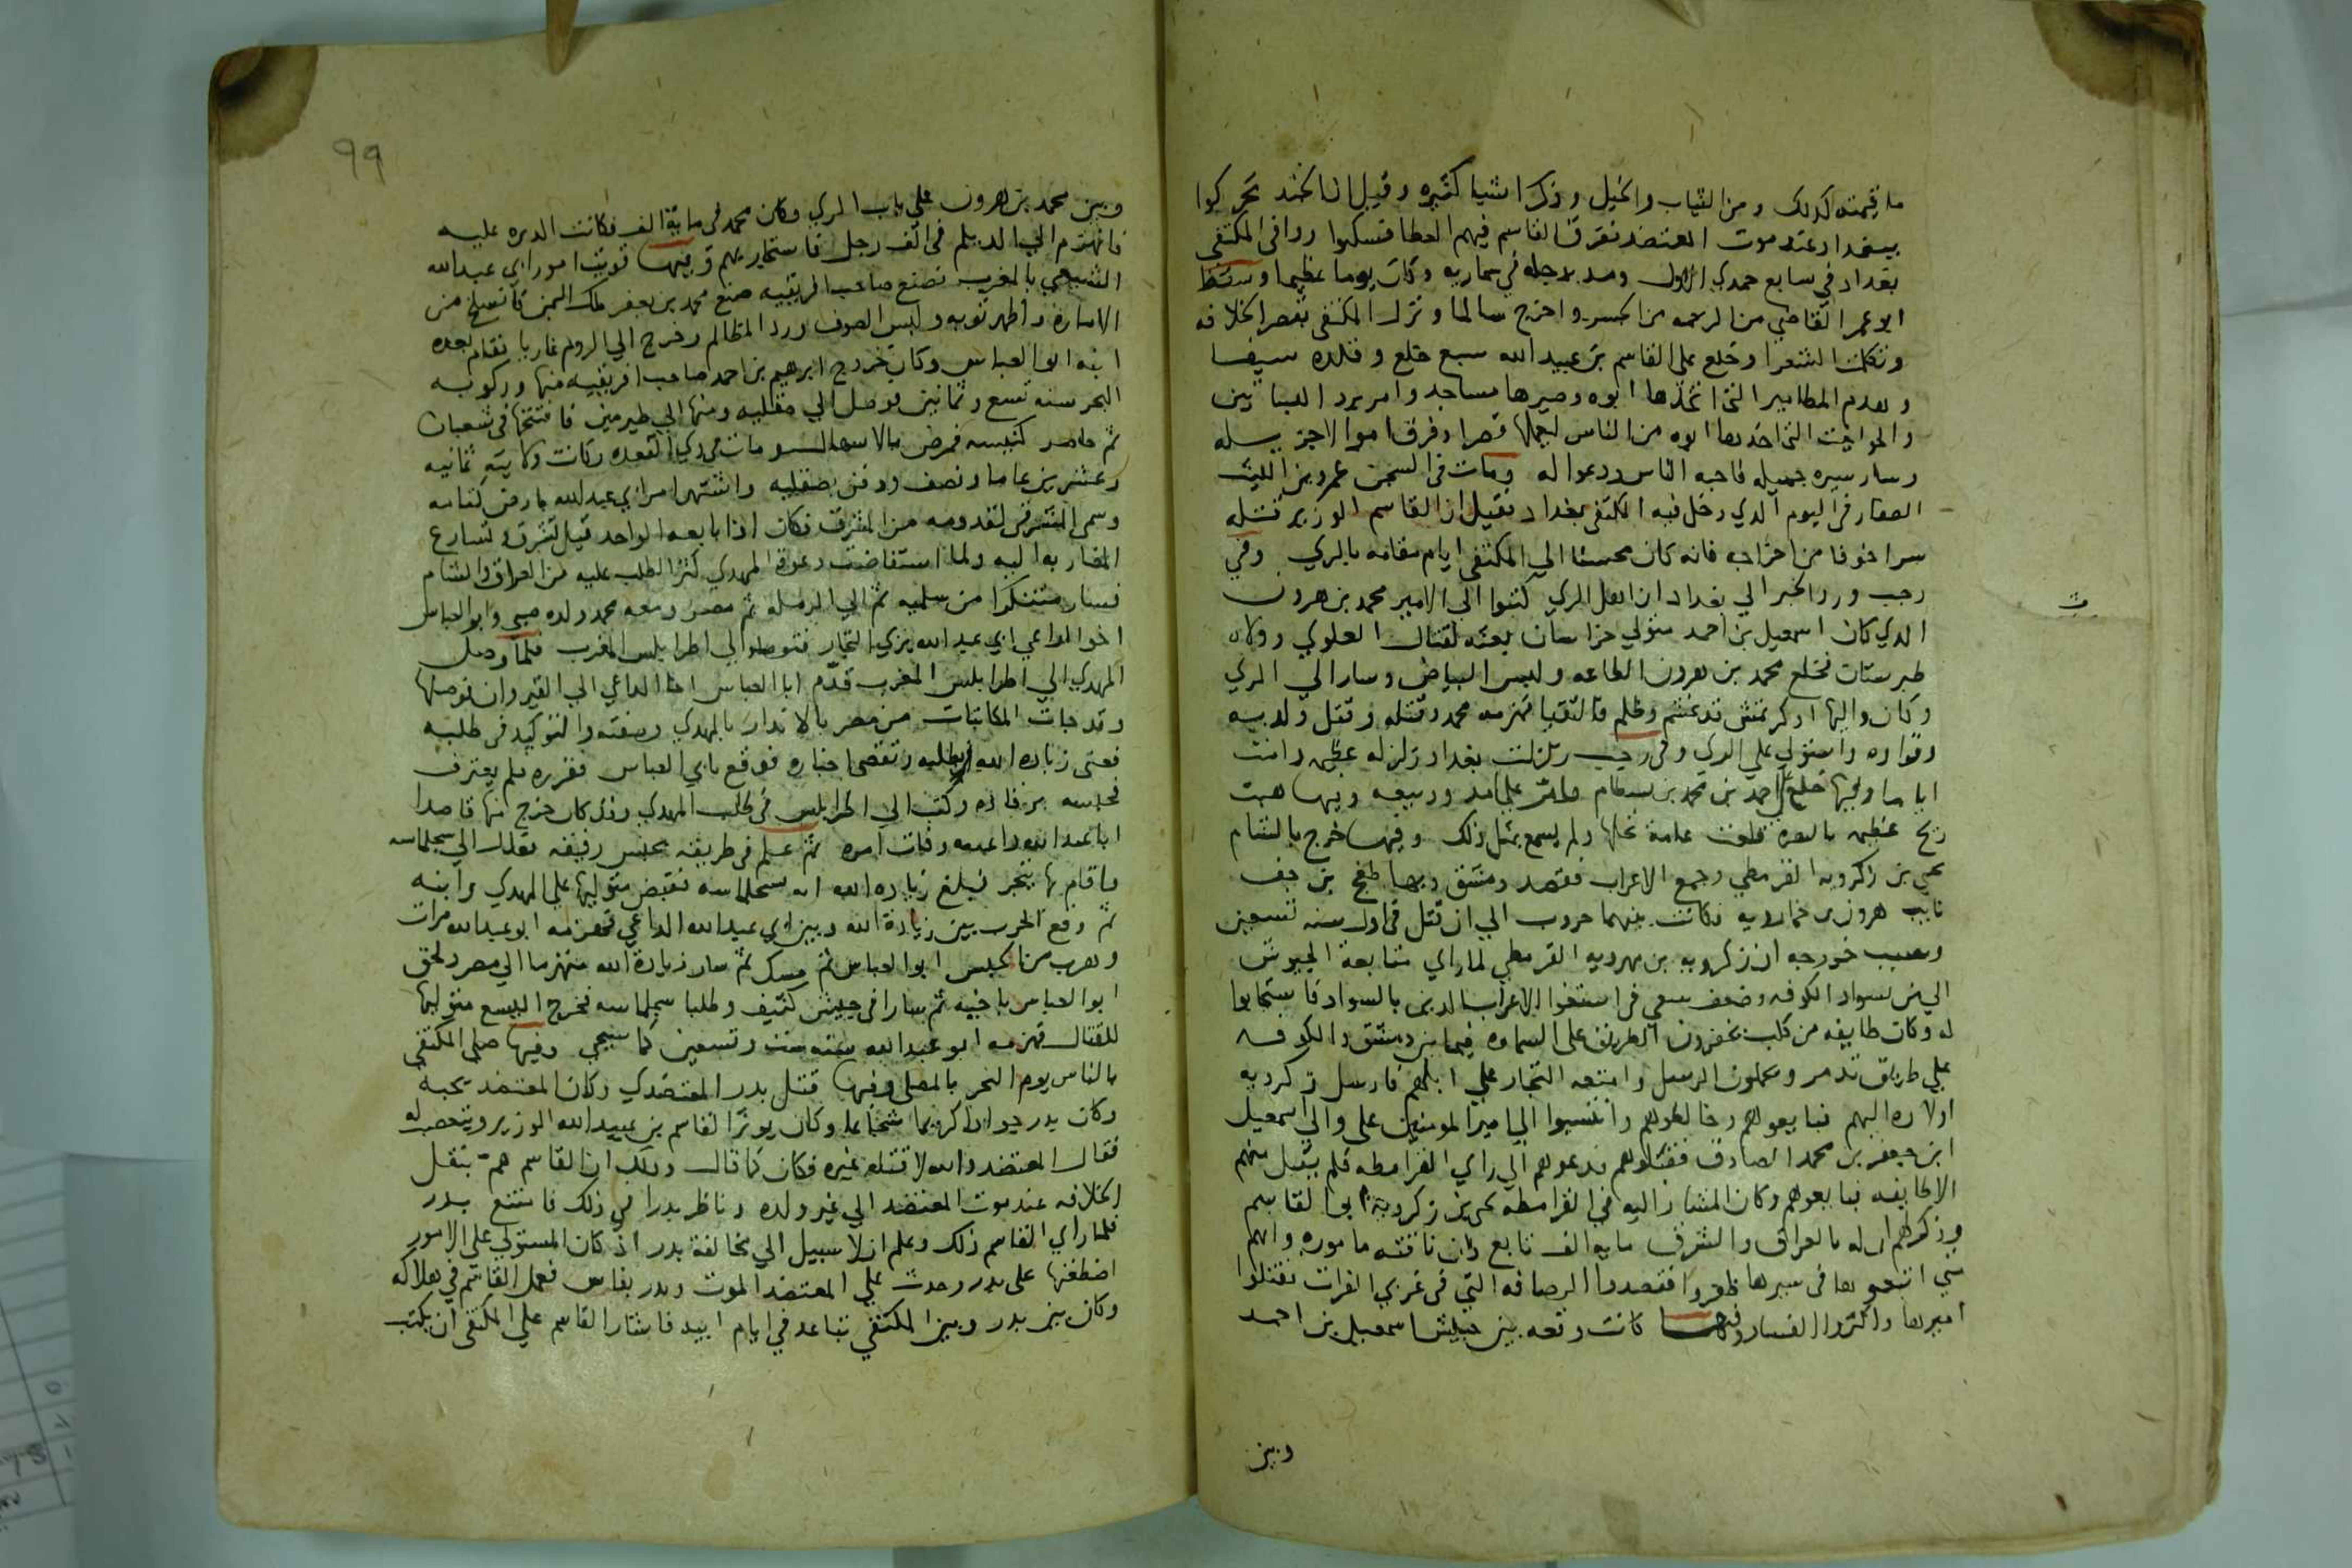 ما قيمته كذلك ومن الثياب والخيل وذكر اشيا كثيره وقيل ان الجند تحركوا
ببغداد عند موت المعتضد ففرق القاسم فيهم العطا فسكنوا ووافى المكتفي
بغداد في سابع جمدي الاول ومد بدجله في سماريه وكان يوما عظيما وسقط
ابو عمر القاضي من الزحمه من الجسر واخرج سالما ونزل المكتفى بقصر الخلافه
وتكلمت الشعرا وخلع على القاسم بن عبيد الله سبع خلع وقلده سيفا
وهدم المطامير التى اتخذها ابوه وصيرها مساجد وامر برد البساتين
والحوانيت التى اخذها ابوه من الناس ليعملها قصرا وفرق اموالا جزيله
وسار سيره جميله فاحبه الناس ودعوا له ومات فى السجن عمرو بن الليث
الصفار فى اليوم الذي دخل فيه المكتفى بغداد فقيل ان القاسم الوزير قتله
سرا خوفا من اخراجه فانه كان محسنا الي المكتفى ايام مقامه بالري وفي
رجب ورد الخبر الي بغداد ان اهل الري كتبوا الي الامير محمد بن هرون
الذي كان اسمعيل بن احمد متولي خراسان بعثه لقتال العلوي وولاه
طبرستان فخلع محمد بن هرون الطاعه ولبس البياض وسار الي الري
وكان واليها اوكرتمش قد غشم وظلم فالتقيا فهزمه محمد وقتله وقتل ولديه
وقواده واستولي على الري وفى رجب زلزلت بغداد زلزله عظيمه دامت
اياما وفيها خلع احمد بن محمد بن بسطام على امد وربيعه وفيها هبت
ريح عظيمه بالبصره قلعت عامة نخلها ولم يسمع بمثل ذلك وفيها خرج بالشام
يحيي بن زكرويه القرمطي وجمع الاعراب فقصد دمشق وبها طغج بن جف
نايب هرون بن خمارويه فكانت بينهما حروب الي ان قتل فى اول سنه تسعين
وسبب خروجه ان زكرويه بن مهرويه القرمطي لما راي متابعة الجيوش
الي من بسواد الكوفه وضعف سعي فى استغوا الاعراب الذين بالسواد فاستجابوا
له وكان طايفه من كلب يخفرون الطريق على السماوه فيما بين دمشق والكوفه
علي طريق تدمر ويحملون الرسل وامتعه التجار علي ابلهم فارسل زكرويه
اولاده اليهم فبايعوهم وخالطوهم وانتسبوا الي امير المومنين على والي اسمعيل
ابن جعفر بن محمد الصادق فقبلوهم فدعوهم الي راي القرامطه فلم يقبل منهم
الا طايفه فبايعوهم وكان المشار اليه في القرامطه يحيى بن زكرويه ابو القاسم
وذكر لهم ان له بالعراق والشرق مايه الف تابع وان ناقته ماموره وانهم
متي اتبعوها فى سيرها ظفروا فقصدوا الرصافه التي فى غربي الفرات فقتلوا
اميرها واكثروا الفساد وفيها كانت وقعه بين جيش اسمعيل بن احمد
وبين
ث
٩٩
وبين محمد بن هرون علي باب الري وكان محمد فى ماية الف فكانت الدبره عليه
فانهزم الي الديلم فى الف رجل فاستجار بهم وفيها قويت امور ابي عبد الله
الشيعي بالمغرب فصنع صاحب افريقيه صنع محمد بن يعفر ملك اليمن فانسلخ من
الاماره واظهر توبه ولبس الصوف ورد المظالم وخرج الي الروم غازيا فقام بعده
ابنه ابو العباس وكان خروج ابرهيم بن احمد صاحب افريقيه منها وركوبه
البحر سنه تسع وثمانين فوصل الي صقليه ومنها الي طبرمين فافتتحها فى شعبان
ثم حاصر كنيسه فمرض بالاسهال ومات فى ذي القعده وكانت ولايته ثمانيه
وعشرين عاما ونصف ودفن بصقليه واشتهر امر ابي عبد الله بارض كتامه
وسمى المشرقى لقدومه من المشرق فكان اذا بايعه الواحد قيل تشرق وتسارع
المغاربه اليه ولما استفاضت دعوة المهدي كثر الطلب عليه من العراق والشام
فسار متنكرا من سلميه ثم الي الرمله ثم مصر ومعه محمد ولده صبى وابو العباس
اخو الداعي ابي عبد الله بزي التجار فتوصلوا الي اطرابلس المغرب فلما وصل
المهدي الي اطرابلس المغرب قدم ابا العباس اخا الداعي الي القيروان فوصلها
وقد جات المكاتبات من مصر بالانذار بالمهدي وصفته والتوكيد فى طلبه
فعنى زيادة الله بطلبه وتقصى اخباره فوقع بابي العباس فقرره فلم يعترف
فحبسه برقاده وكتب الي اطرابلس فى طلب المهدي وقد كان خرج منها قاصدا
ابا عبد الله وفات امره ثم علم فى طريقه بحبس رفيقه فعدل الي سجلماسه
فاقام بها يتجر فبلغ زيادة الله انه بسجلماسه فقبض متوليها علي المهدي وابنه
ثم وقع الحرب بين زيادة الله وبين ابي عبد الله الداعي فهزمه ابو عبد الله مرات
وهرب من الحبس ابو العباس ثم مسك ثم سار زيادة الله منهزما الي مصر ولحق
ابو العباس باخيه ثم سارا فى جيش كثيف وطلبا سجلماسه فخرج اليسع متوليها
للقتال فهزمه ابو عبد الله سنه ست وتسعين كما سيجي وفيها صلى المكتفى
بالناس يوم النحر بالمصلى وفيها قتل بدر المعتضدي وكان المعتضد يحبه
وكان بدر جوادا كريما شجاعا وكان يوثر القاسم بن عبيد الله الوزير ويتعصب له
فقال المعتضد والله لا قتله غيره فكان كما قال وذلك ان القاسم هم بنقل
الخلافه عند موت المعتضد الي غير ولده وناظر بدرا في ذلك فامتنع بدر
فلما راي القاسم ذلك وعلم ان لا سبيل الي مخالفة بدر اذ كان المستولي علي الامور
اضطغنها على بدر وحدث علي المعتضد الموت وبدر بفارس فعمل القاسم في هلاكه
وكان بين بدر وبين المكتفي تباعد في ايام ابيه فاشار القاسم علي المكتفى ان يكتب